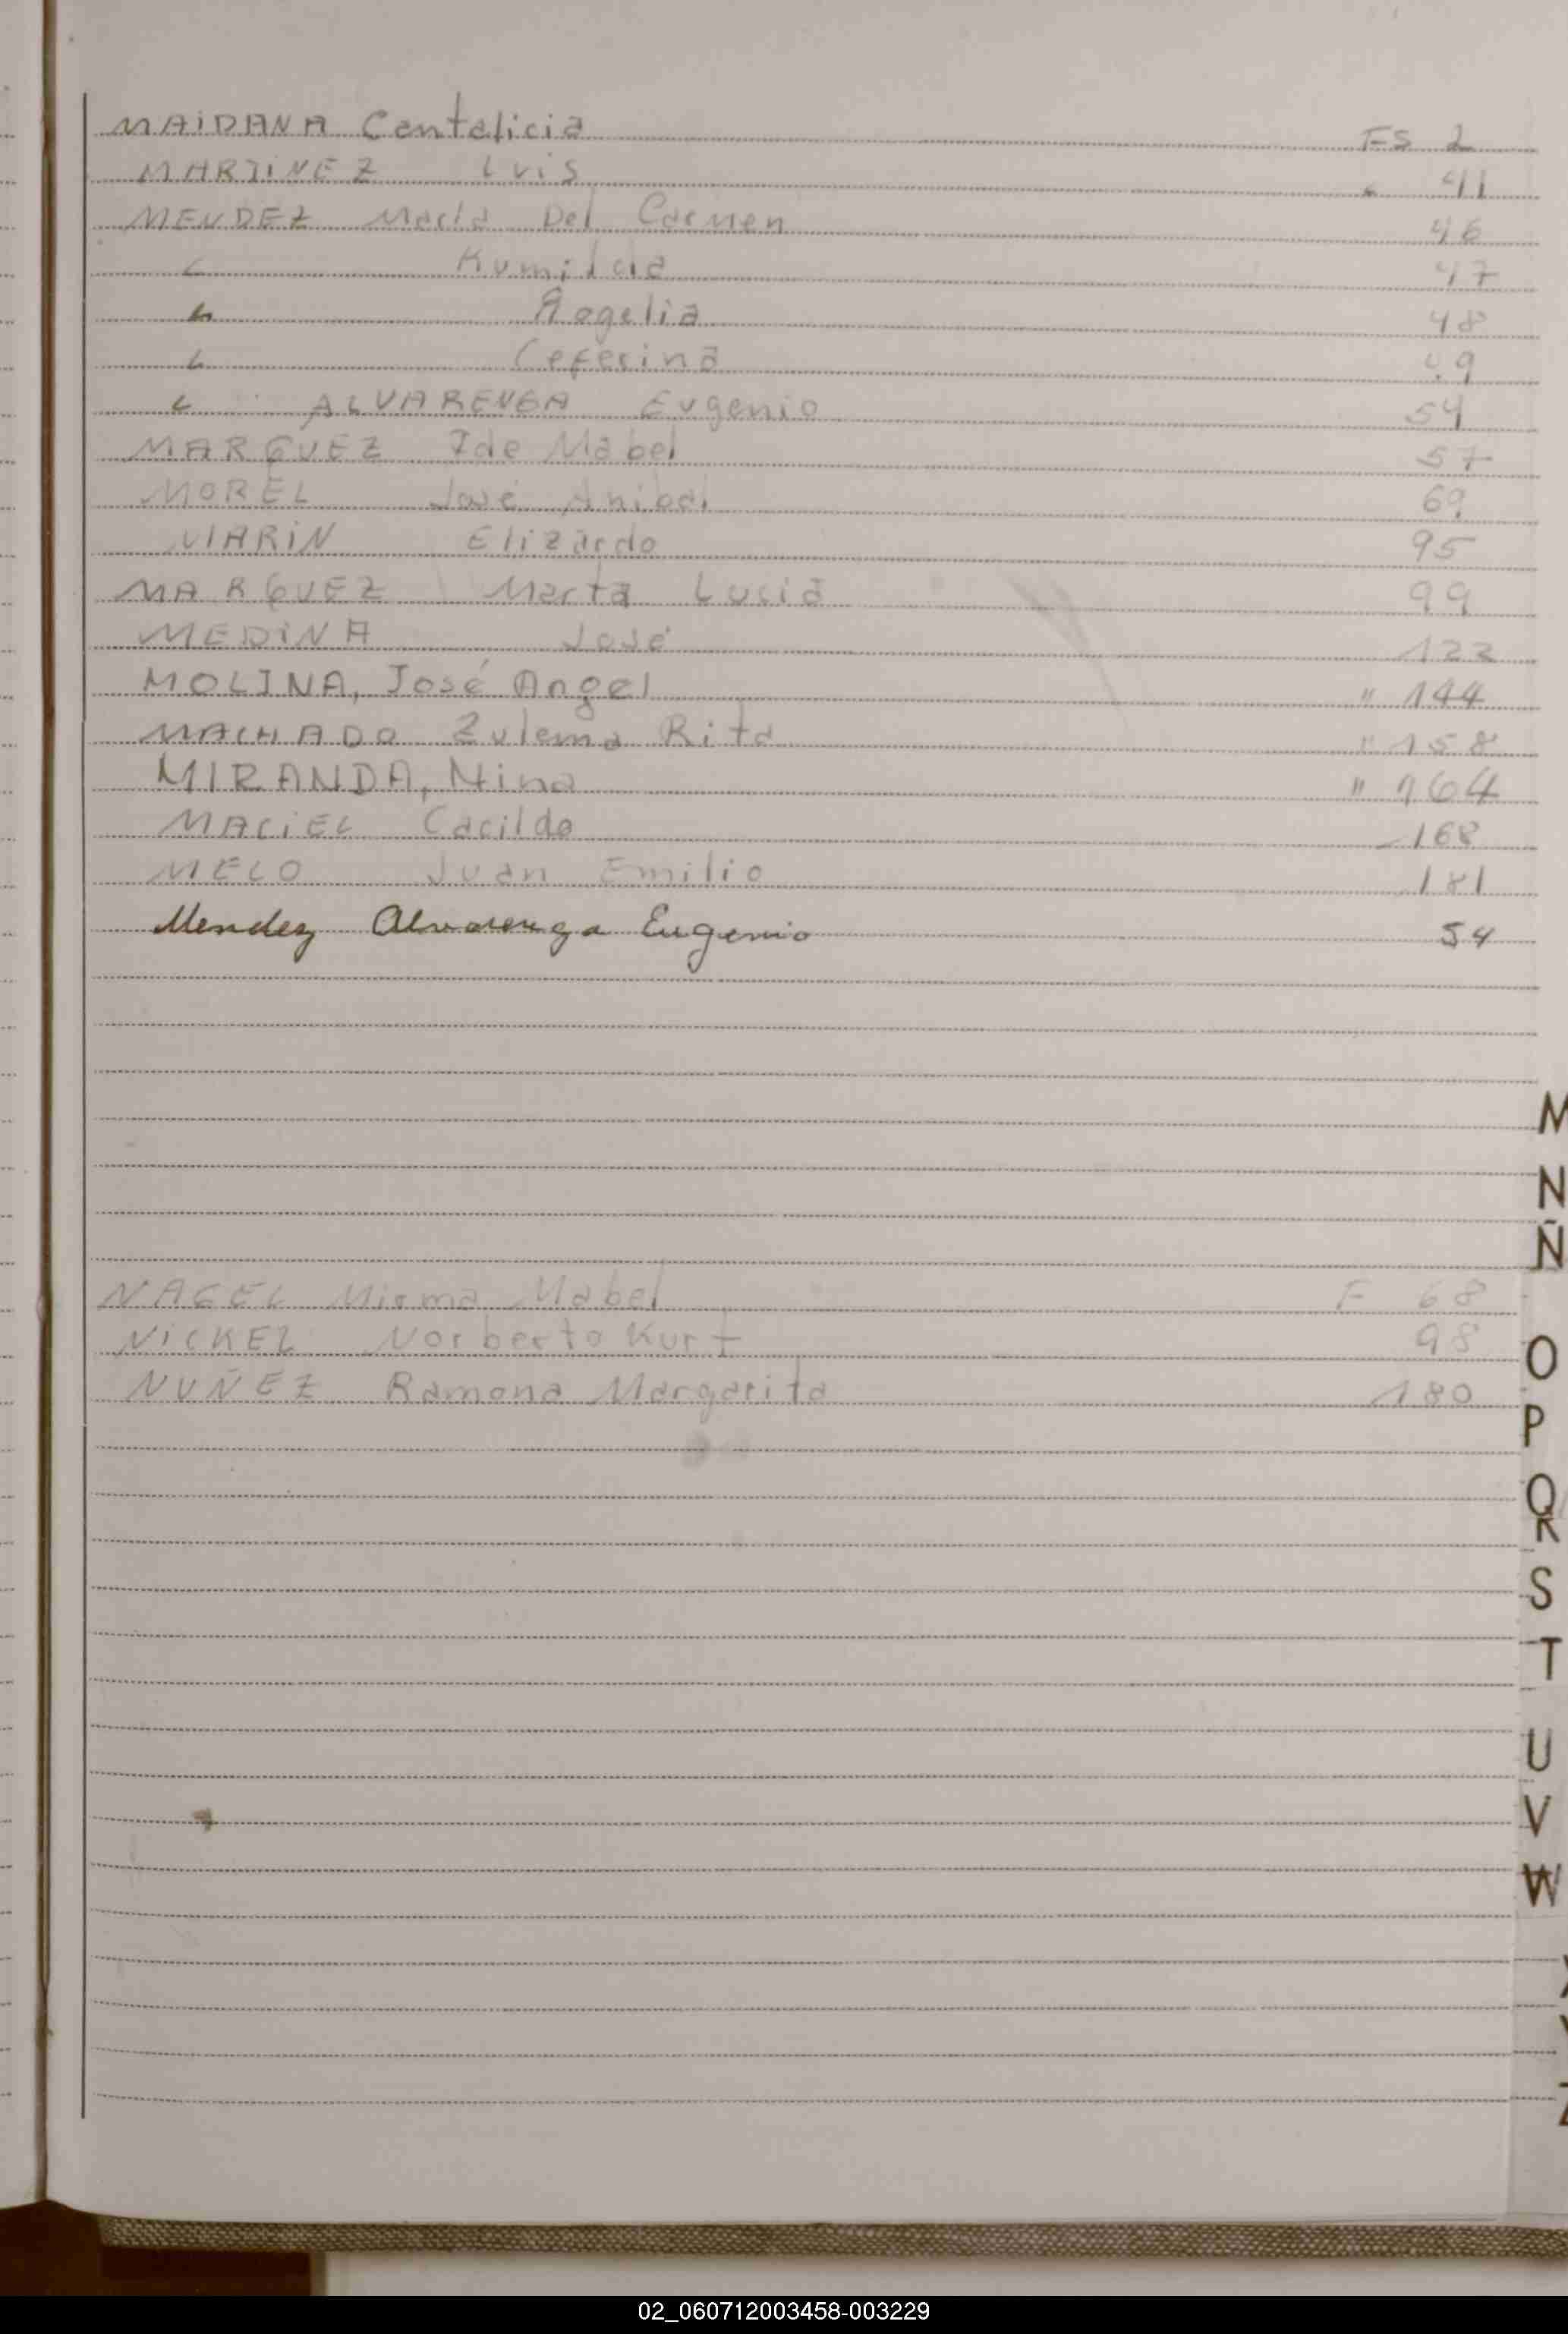 MAIDANA Cantalicia FS 2
MARTINEZ Luis " 41
MENDEZ María Del Carmen 46
" Rumilda 47
" Rogelia 48
" Ceferina 49
" ALVARENGA Eugenio 54
MARQUEZ Ide Mabel 57
MOREL José Anibal 69
MARIN Elizardo 95
MARQUEZ Marta Lucia 99
MEDINA José 122
MOLINA, José Angel " 144
MACHADO Zulema Rita " 158
MIRANDA, Nina " 164
MACIEL Cacildo 168
MELO Juan Emilio 181
Mendez Alvarenga Eugenio 54
M
N
Ñ
NAGEL Mirma Mabel F 68
NICKEL Norberto Kurt 98
NUÑEZ Ramona Margarita 180
O
P
Q
R
S
T
U
V
W
02_060712003458-003229